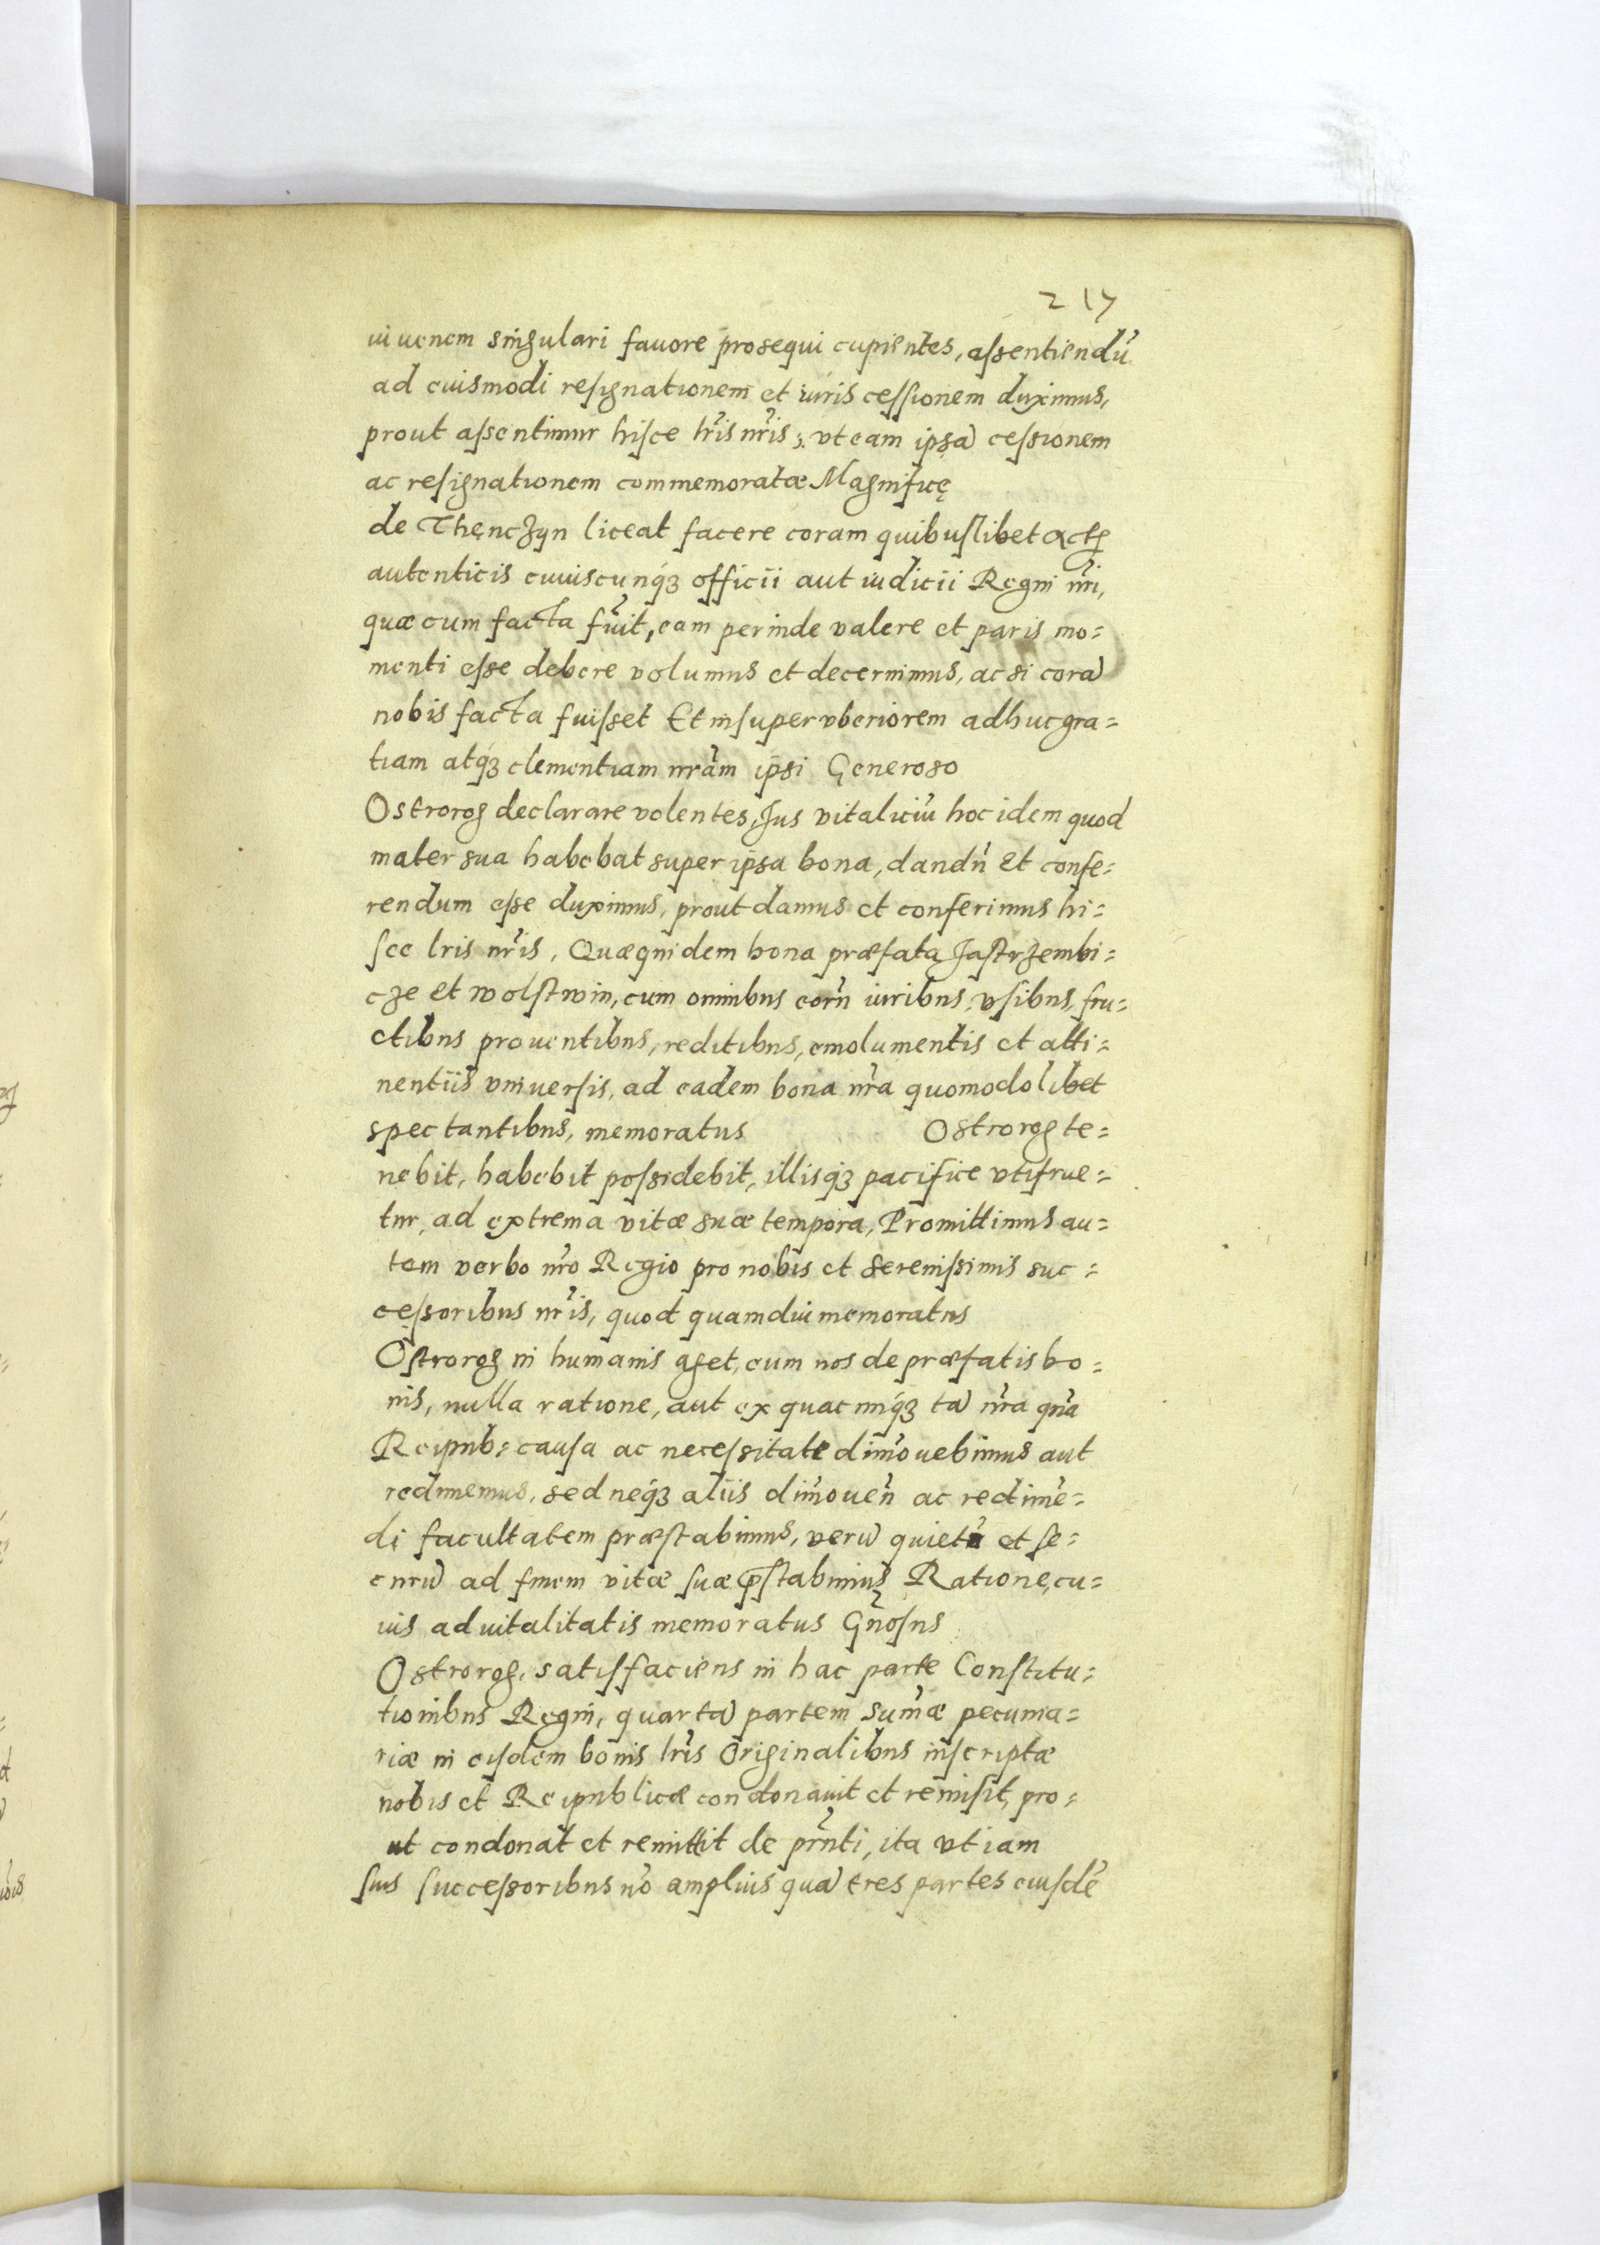 217
iuuenem singulari fauore prosequi cupientes, assentiendū
ad euismodi resignationem et iuris cessionem duximus,
prout assentimur hisce lr̃is nr̃is, vt eam ipsā cessionem
ac resignationem commemoratæ Magnificę
de Thęnczyn liceat facere coram quibuslibet actꝭ
autenticis cuiuscunqꝫ officii aut iudicii Regni nr̃i,
quæ cum facta fũit, eam perinde valere et paris mo=
menti esse debere volumus et decernimus, ac si corā
nobis facta fuisset Et insuper vberiorem adhuc gra=
tiam atqꝫ clementiam nr̃am ip̄si Generoso
Ostrorog declarare volentes, Jus vitaliciū hoc idem quod
mater sua habebat super ip̄sa bona, dandũ et confe=
rendum esse duximus, prout damus et conferimus hi=
sce lris nr̃is, Quæquidem bona præfata Jastrzembi=
cze et wolstwin, cum omnibus eorũ iuribus, vsibus, fru=
ctibus prouentibus, reditibus, emolumentis et atti=
nentiis vniuersis, ad eadem bona nr̃a quomodolibet
spectantibus, memoratus Ostrorog te=
nebit, habebit possidebit, illisqꝫ pacifice vtifrue=
tur, ad extrema vitæ suæ tempora, Promittimus au=
tem verbo nr̃o Regio pro nobis et serenissimis suc=
cessoribus nr̃is, quod quamdiu memoratus
Ostrorog in humanis aget, eum nos de præfatis bo=
nis, nulla ratione, aut ex quacunqꝫ tā nr̃a qũa
Reipub= causa ac necessitate dim̃ouebimus aut
redimemus, sed neqꝫ aliis dim̃ouen̄ ac redimē=
di facultatem præstabimus, verū quietū et se=
curū ad finem vitæ suæ p̄stabimus Ratione, cu=
ius aduitalitatis memoratus Gñosus
Ostrorog, satisfaciens in hac parte Constitu=
tionibus Regni, quartā partem sum̃æ pecunia=
riæ in eisdem bonis lr̃is Originalibus inscriptæ
nobis et Reipublicæ condonauit et remisit, pro=
ut condonat et remittit de pr̃nti, ita vt iam
suis successoribus nō amplius quā tres partes eiusdē